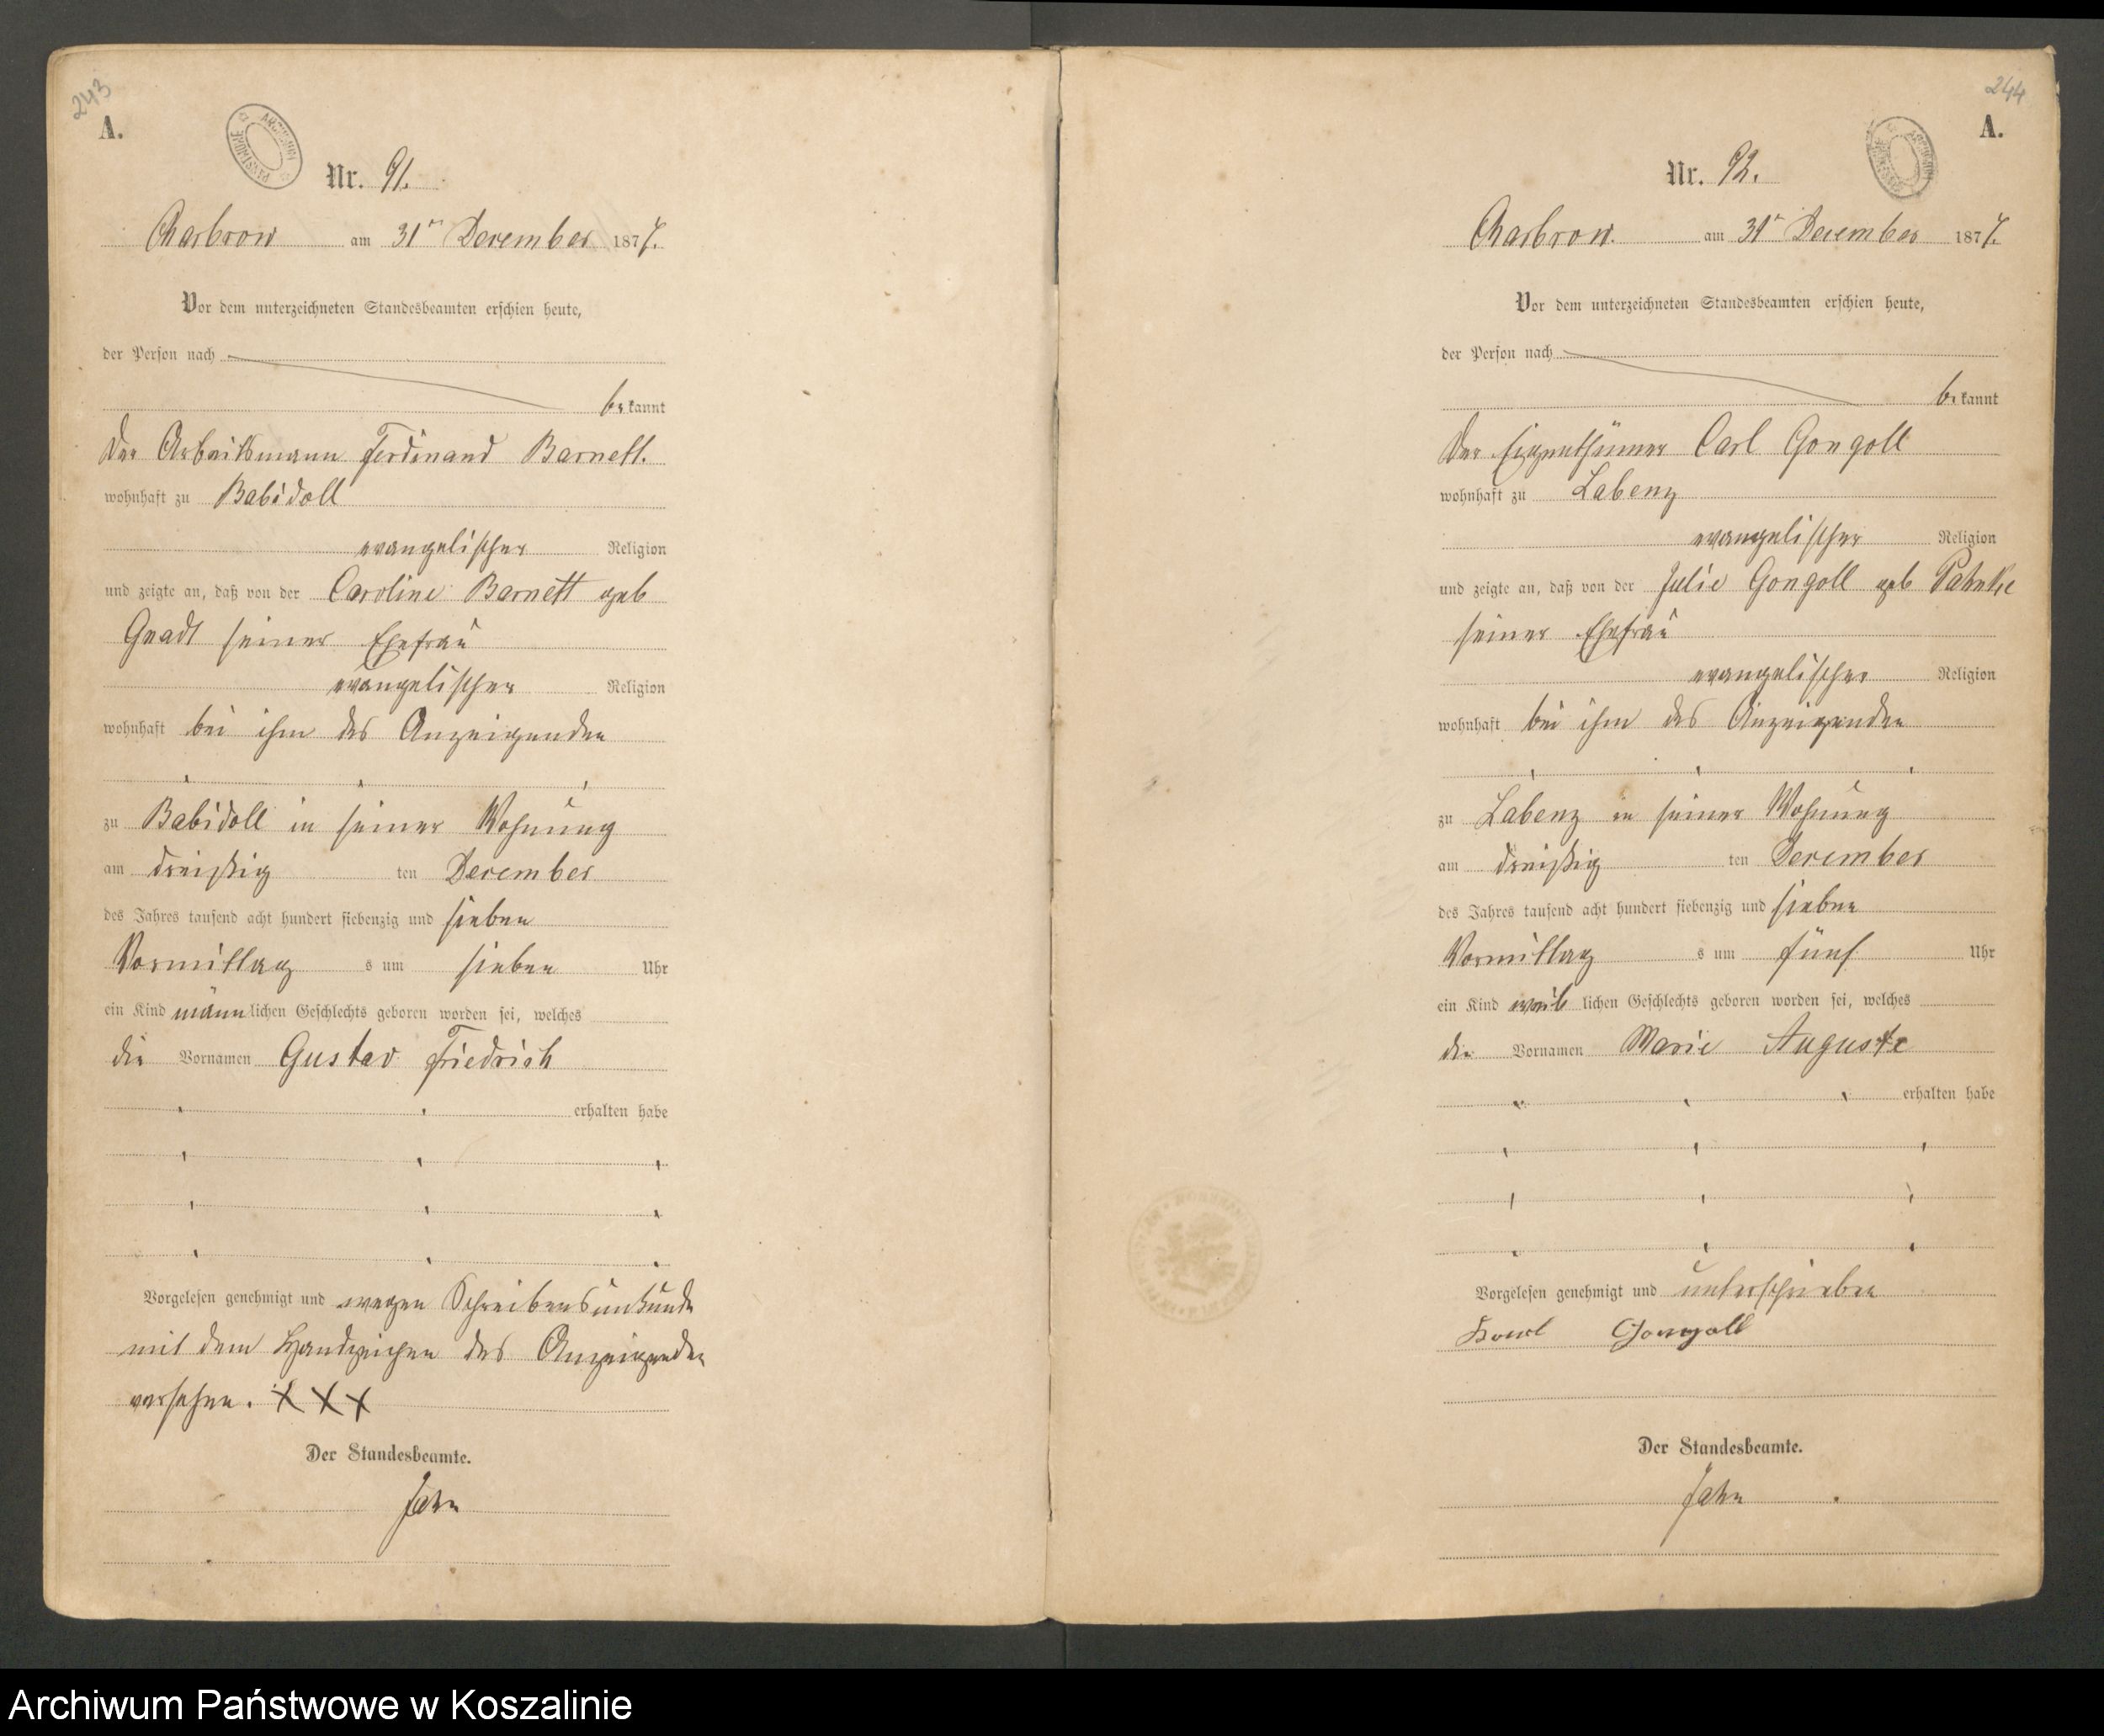 243
A.
ARCHIWUM PAŃSTWOWE
Nr. 91.
Charbrow am 31ten December 1877.
Vor dem unterzeichneten Standesbeamten erschien heute,
der Person nach
bekannt
der Arbeitsmann Ferdinand Barnett.
wohnhaft zu Babidoll
evangelischer Religion
und zeigte an, daß von der Caroline Barnett geb
Gradt seiner Ehefrau
evangelischer Religion
wohnhaft bei ihm des Anzeigenden
zu Babidoll in seiner Wohnung
am dreißig ten December
des Jahres tausend acht hundert siebenzig und sieben
Vormittag s um sieben Uhr
ein Kind männlichen Geschlechts geboren worden sei, welches
die Vornamen Gustav Friedrich
erhalten habe
Vorgelesen genehmigt und wegen Schreibensunkunde
mit dem Handzeichen des Anzeigenden
versehen. X X X
Der Standesbeamte.
Jahn
244
A.
Nr. 92.
Charbrow. am 31ten December 1877.
Vor dem unterzeichneten Standesbeamten erschien heute,
der Person nach
bekannt
der Eigenthümer Carl Gongoll
wohnhaft zu Labenz
evangelischer Religion
und zeigte an, daß von der Julie Gongoll geb Pahnke
seiner Ehefrau
evangelischer Religion
wohnhaft bei ihm des Anzeigenden
zu Labenz in seiner Wohnung
am dreißig ten December
des Jahres tausend acht hundert siebenzig und sieben
Vormittag s um fünf Uhr
ein Kind weiblichen Geschlechts geboren worden sei, welches
die Vornamen Marie Auguste
erhalten habe
Vorgelesen genehmigt und unterschrieben
Karl Gongoll
Der Standesbeamte.
Jahn
Archiwum Państwowe w Koszalinie